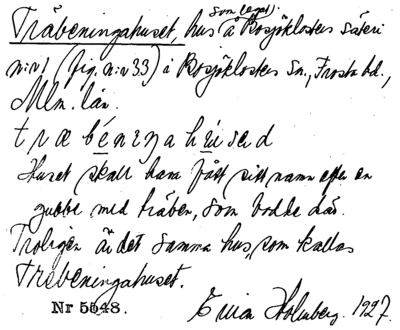 som legat).
Träbeningahuset, hus å Bosjöklosters säteri
n:r 1 (fig. n:r 33) i Bosjöklosters sn., Frosta hd.,
Mlm. län.
træbéniŋahùsəd
Huset skall ha fått sitt namn efter en
gubbe med träben, som bodde där.
Troligen är det samma hus, som kallas
Träbeningahuset.
Nr 5548. Erica Holmberg. 1927.